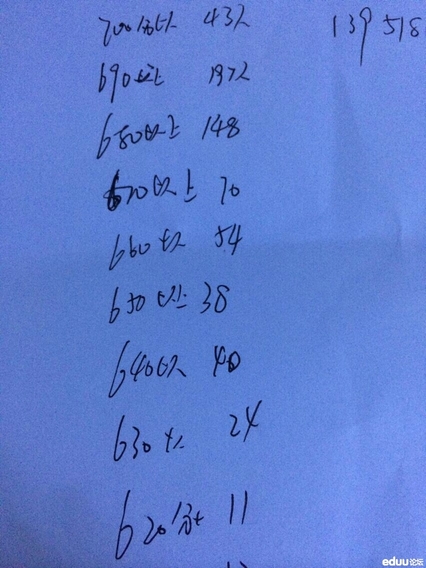 700分以上 43人 139 518
690以上 197人
680以上 148
670以上 70
660以上 54
650以上 38
640以上 40
630以上 24
620分以上 11
eduu论坛